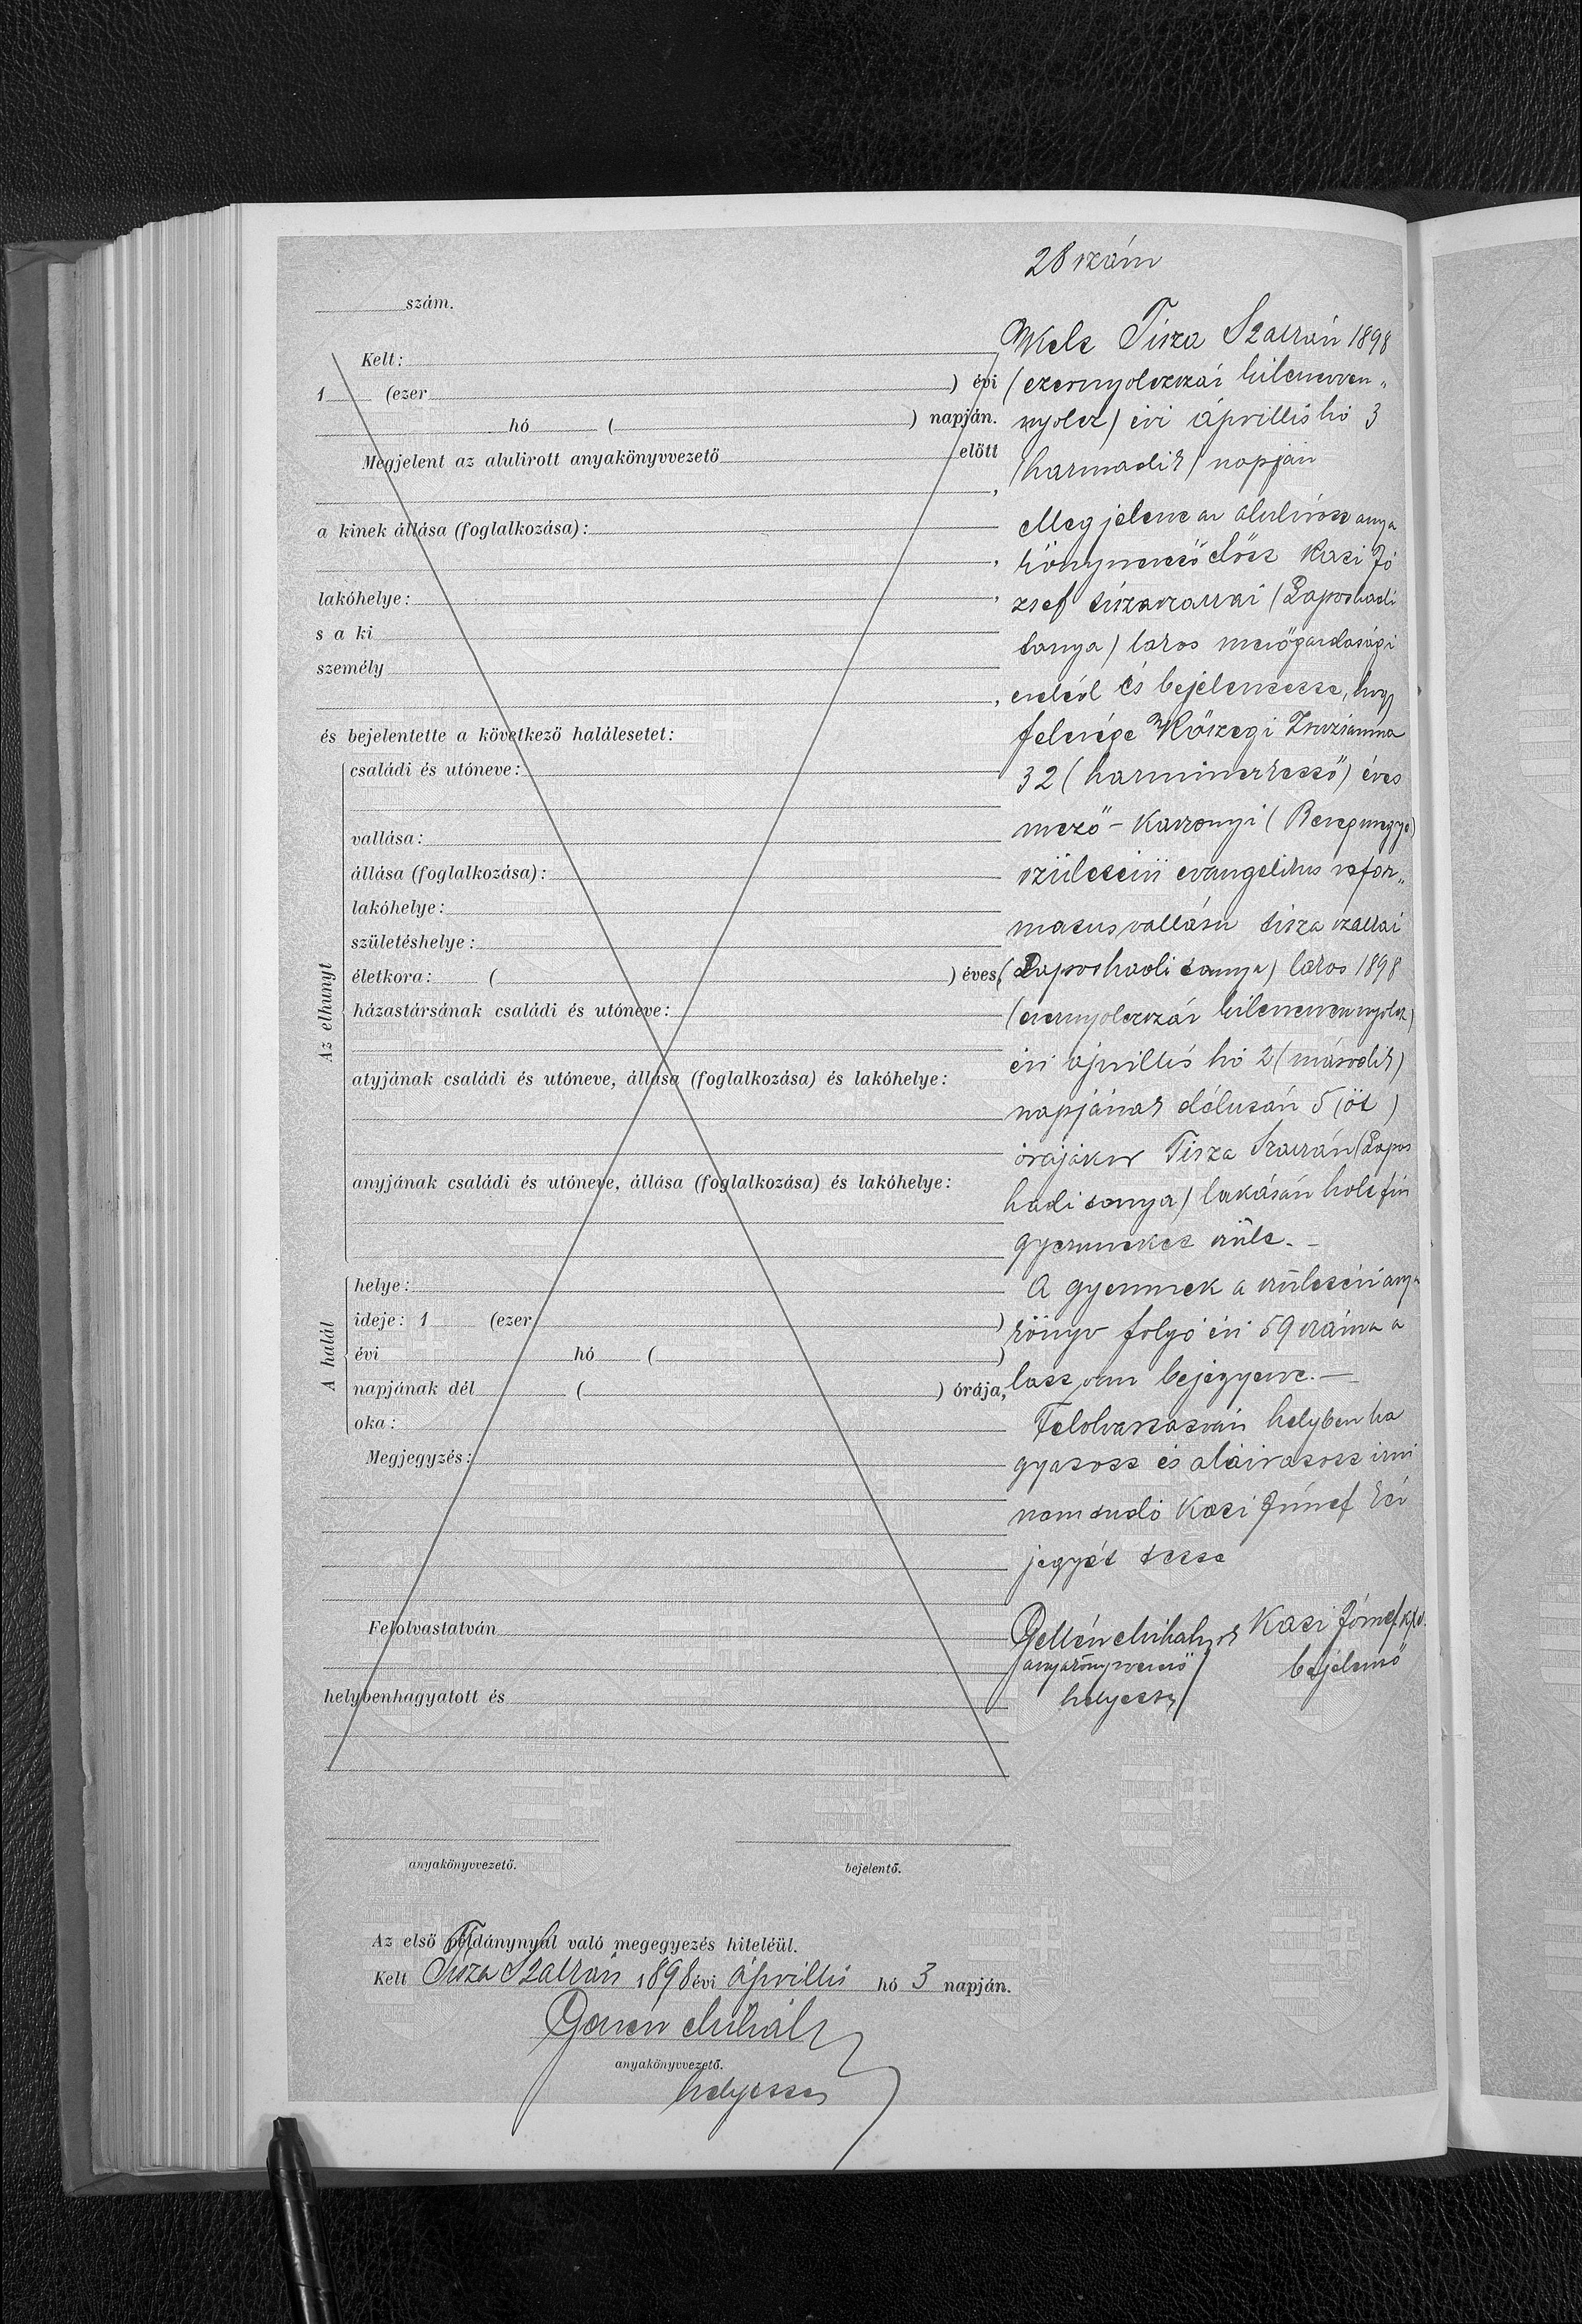 28 szám
szám.
Kelt:
1 (ezer ) évi
hó ( ) napján.
Megjelent az alulirott anyakönyvvezető előtt
,
a kinek állása (foglalkozása):
,
lakóhelye: ,
s a ki
személy
,
és bejelentette a következő halálesetet:
Az elhunyt
családi és utóneve:
vallása:
állása (foglalkozása):
lakóhelye:
születéshelye:
életkora: ( ) éves,
házastársának családi és utóneve:
atyjának családi és utóneve, állása (foglalkozása) és lakóhelye:
anyjának családi és utóneve, állása (foglalkozása) és lakóhelye:
A halál
helye:
ideje: 1 (ezer )
évi hó ( )
napjának dél ( ) órája,
oka:
Megjegyzés:
Felolvastatván
helybenhagyatott és
anyakönyvvezető. bejelentő.
Kelt Tisza Szalkán 1898
(ezernyolczszáz kilenczven„
nyolcz) évi áprillis hó 3
(harmadik) napján
Megjelent az alulírott anya
könyvvezető előtt Kati Jó
zsef tiszaszalkai (Laposhadi
tanya) lakos mezőgazdasági
cseléd és bejelentette, hogy
felesége Kőszegi Zsuzsánna
32 (harminczkettő) éves
mező-Kaszonyi (Beregmegye)
születésü evangelikus refor„
matus vallásu tisza szalkai
(Laposhadi tanya) lakos 1898
(ezernyolczszáz kilenczvennyolcz)
évi áprillis hó 2 (második)
napjának délután 5 (öt)
órájakor Tisza Szalkán (Lapos
hadi tanya) lakásán holt fiu
gyermeket szült. -
A gyermek a születési anya
könyv folyó évi 59 száma a
latt van bejegyezve. -
Felolvastatván helyben ha
gyatott és aláiratott irni
nem tudó Kati József kéz
jegyét tette
Gellén Mihály Kati József k/v.
anyakönyvvezető bejelentő
helyettes
Az első példánynyal való megegyezés hiteléül.
Kelt Tisza Szalkán 1898 évi áprillis hó 3 napján.
Gellén Mihály
anyakönyvvezető.
helyettes